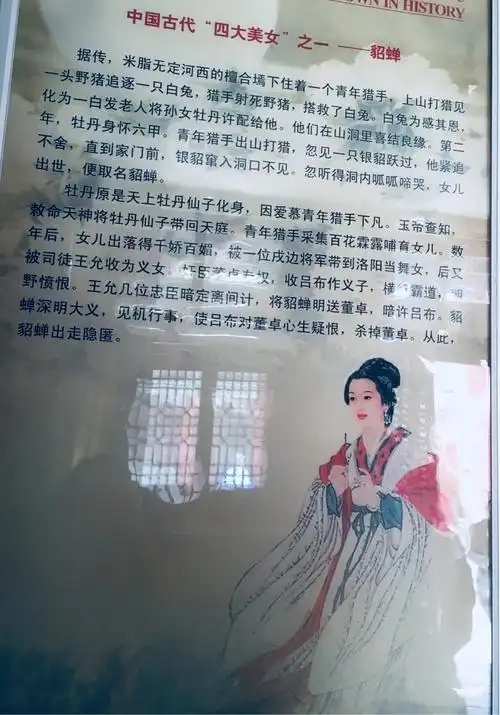 OWN IN HISTORY
中国古代“四大美女”之一 ——貂蝉
据传，米脂无定河西的檀合墕下住着一个青年猎手，上山打猎见
一头野猪追逐一只白兔，猎手射死野猪，搭救了白兔。白兔为感其恩，
化为一白发老人将孙女牡丹许配给他。他们在山洞里喜结良缘。第二
年，牡丹身怀六甲。青年猎手出山打猎，忽见一只银貂跃过，他紧追
不舍，直到家门前，银貂窜入洞口不见。忽听得洞内呱呱啼哭，女儿
出世，便取名貂蝉。
牡丹原是天上牡丹仙子化身，因爱慕青年猎手下凡。玉帝查知，
敕命天神将牡丹仙子带回天庭。青年猎手采集百花霖露哺育女儿。数
年后，女儿出落得千娇百媚，被一位戍边将军带到洛阳当舞女，后又
被司徒王允收为义女。奸臣董卓专权，收吕布作义子，横行霸道，朝
野愤恨。王允几位忠臣暗定离间计，将貂蝉明送董卓，暗许吕布。貂
蝉深明大义，见机行事，使吕布对董卓心生疑恨，杀掉董卓。从此，
貂蝉出走隐匿。